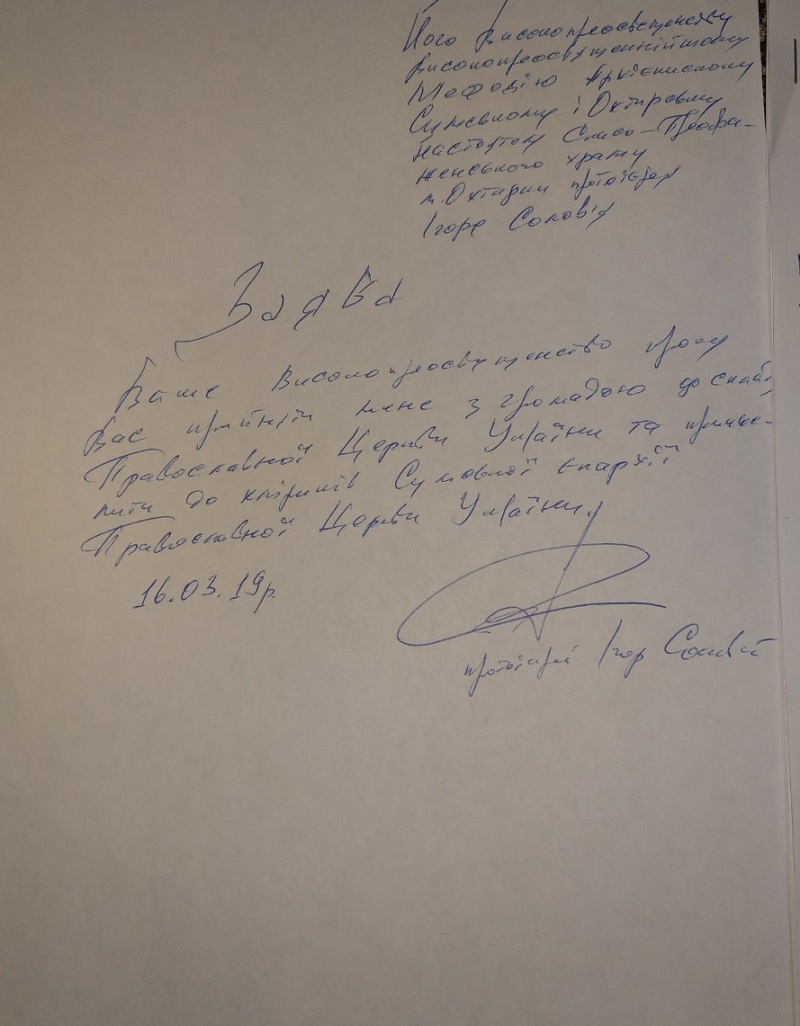 Його Високопреосвященству
Високопреосвященнійшому
Мефодію Архієпископу
Сумському і Охтирському
настоятеля Спасо-Преобра-
женського храму
м. Охтирки протоієрея
Ігоря Соловія
Заява
Ваше Високопреосвященство прошу
Вас прийняти мене з громадою до складу
Православної Церкви України та
до кліриків Сумської Єпархії
Православної Церкви України.
16.03.19р.
протоієрей Ігор Соловій